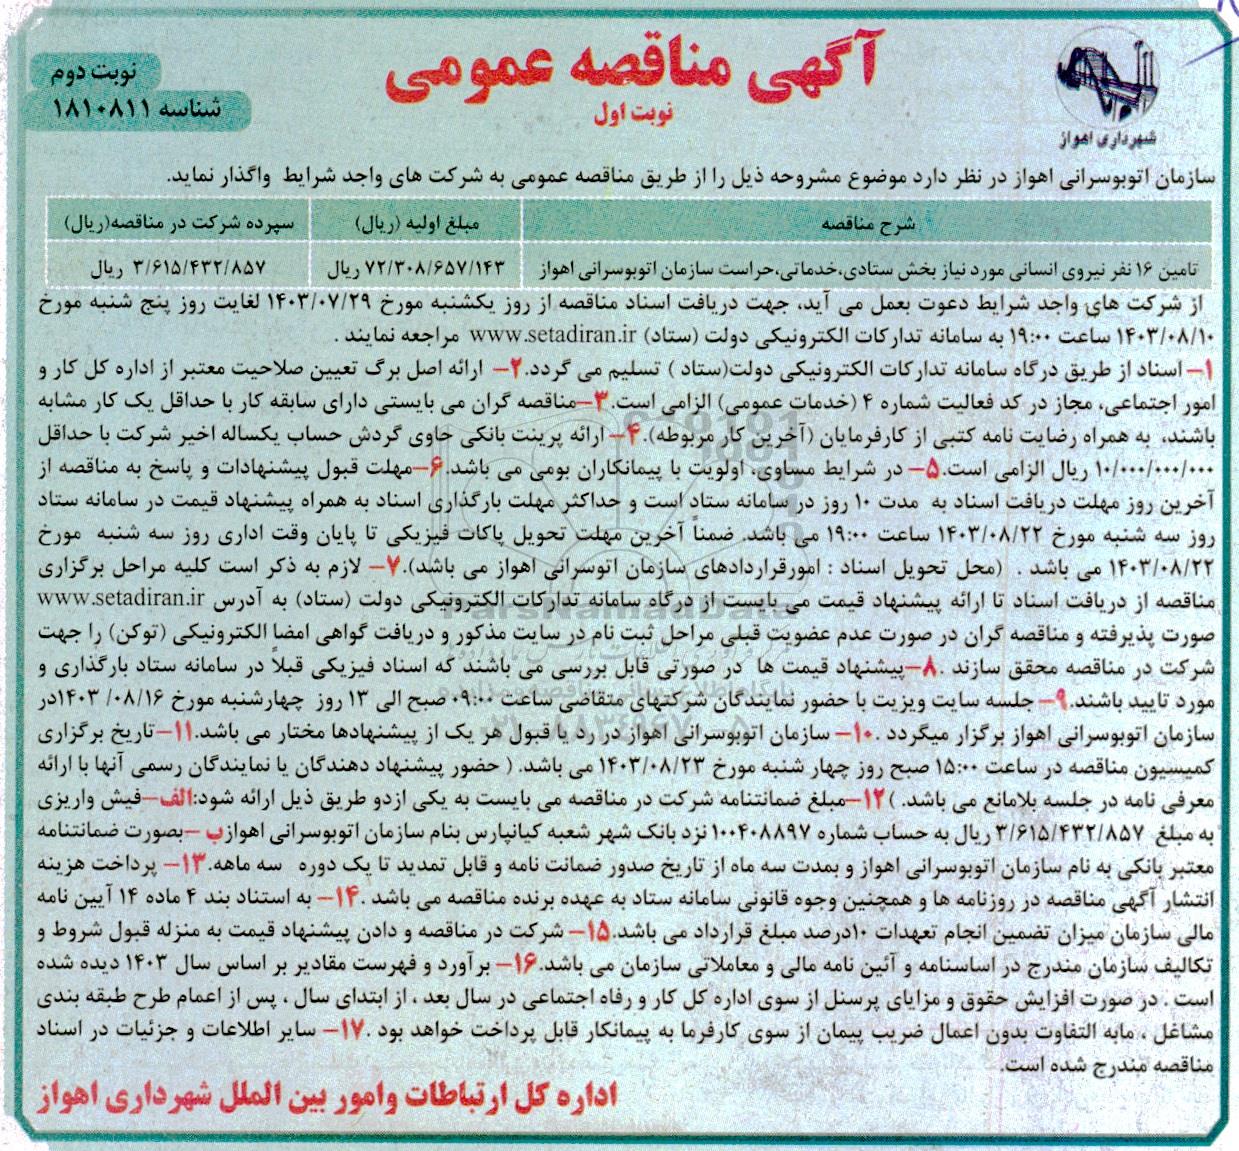 آگهی مناقصه عمومی
نوبت اول
نوبت دوم
شناسه ۱۸۱۰۸۱۱
شهرداری اهواز
سازمان اتوبوسرانی اهواز در نظر دارد موضوع مشروحه ذیل را از طریق مناقصه عمومی به شرکت های واجد شرایط واگذار نماید.
شرح مناقصه	مبلغ اولیه (ریال)	سپرده شرکت در مناقصه(ریال)
تامین ۱۶ نفر نیروی انسانی مورد نیاز بخش ستادی،خدماتی،حراست سازمان اتوبوسرانی اهواز	۷۲/۳۰۸/۶۵۷/۱۴۳ ریال	۳/۶۱۵/۴۳۲/۸۵۷ ریال
از شرکت های واجد شرایط دعوت بعمل می آید، جهت دریافت اسناد مناقصه از روز یکشنبه مورخ ۱۴۰۳/۰۷/۲۹ لغایت روز پنج شنبه مورخ
۱۴۰۳/۰۸/۱۰ ساعت ۱۹:۰۰ به سامانه تدارکات الکترونیکی دولت (ستاد) www.setadiran.ir مراجعه نمایند .
۱- اسناد از طریق درگاه سامانه تدارکات الکترونیکی دولت(ستاد ) تسلیم می گردد.۲- ارائه اصل برگ تعیین صلاحیت معتبر از اداره کل کار و
امور اجتماعی، مجاز در کد فعالیت شماره ۴ (خدمات عمومی) الزامی است.۳-مناقصه گران می بایستی دارای سابقه کار با حداقل یک کار مشابه
باشند، به همراه رضایت نامه کتبی از کارفرمایان (آخرین کار مربوطه).۴- ارائه پرینت بانکی حاوی گردش حساب یکساله اخیر شرکت با حداقل
۱۰/۰۰۰/۰۰۰/۰۰۰ ریال الزامی است.۵- در شرایط مساوی، اولویت با پیمانکاران بومی می باشد.۶-مهلت قبول پیشنهادات و پاسخ به مناقصه از
آخرین روز مهلت دریافت اسناد به مدت ۱۰ روز در سامانه ستاد است و حداکثر مهلت بارگذاری اسناد به همراه پیشنهاد قیمت در سامانه ستاد
روز سه شنبه مورخ ۱۴۰۳/۰۸/۲۲ ساعت ۱۹:۰۰ می باشد. ضمناً آخرین مهلت تحویل پاکات فیزیکی تا پایان وقت اداری روز سه شنبه مورخ
۱۴۰۳/۰۸/۲۲ می باشد . (محل تحویل اسناد : امورقراردادهای سازمان اتوسرانی اهواز می باشد).۷- لازم به ذکر است کلیه مراحل برگزاری
مناقصه از دریافت اسناد تا ارائه پیشنهاد قیمت می بایست از درگاه سامانه تدارکات الکترونیکی دولت (ستاد) به آدرس www.setadiran.ir
صورت پذیرفته و مناقصه گران در صورت عدم عضویت قبلی مراحل ثبت نام در سایت مذکور و دریافت گواهی امضا الکترونیکی (توکن) را جهت
شرکت در مناقصه محقق سازند .۸-پیشنهاد قیمت ها در صورتی قابل بررسی می باشند که اسناد فیزیکی قبلاً در سامانه ستاد بارگذاری و
مورد تایید باشند.۹- جلسه سایت ویزیت با حضور نمایندگان شرکتهای متقاضی ساعت ۰۹:۰۰ صبح الی ۱۳ روز چهارشنبه مورخ ۰۸/۱۶/ ۱۴۰۳در
سازمان اتوبوسرانی اهواز برگزار میگردد .۱۰- سازمان اتوبوسرانی اهواز در رد یا قبول هر یک از پیشنهادها مختار می باشد.۱۱-تاریخ برگزاری
کمیسیون مناقصه در ساعت ۱۵:۰۰ صبح روز چهار شنبه مورخ ۱۴۰۳/۰۸/۲۳ می باشد. ( حضور پیشنهاد دهندگان یا نمایندگان رسمی آنها با ارائه
معرفی نامه در جلسه بلامانع می باشد. )۱۲-مبلغ ضمانتنامه شرکت در مناقصه می بایست به یکی ازدو طریق ذیل ارائه شود:الف-فیش واریزی
به مبلغ ۳/۶۱۵/۴۳۲/۸۵۷ ریال به حساب شماره ۱۰۰۴۰۸۸۹۷ نزد بانک شهر شعبه کیانپارس بنام سازمان اتوبوسرانی اهوازب -بصورت ضمانتنامه
معتبر بانکی به نام سازمان اتوبوسرانی اهواز و بمدت سه ماه از تاریخ صدور ضمانت نامه و قابل تمدید تا یک دوره سه ماهه.۱۳- پرداخت هزینه
انتشار آگهی مناقصه در روزنامه ها و همچنین وجوه قانونی سامانه ستاد به عهده برنده مناقصه می باشد .۱۴- به استناد بند ۴ ماده ۱۴ آیین نامه
مالی سازمان میزان تضمین انجام تعهدات ۱۰درصد مبلغ قرارداد می باشد.۱۵- شرکت در مناقصه و دادن پیشنهاد قیمت به منزله قبول شروط و
تکالیف سازمان مندرج در اساسنامه و آئین نامه مالی و معاملاتی سازمان می باشد.۱۶- برآورد و فهرست مقادیر بر اساس سال ۱۴۰۳ دیده شده
است . در صورت افزایش حقوق و مزایای پرسنل از سوی اداره کل کار و رفاه اجتماعی در سال بعد ، از ابتدای سال ، پس از اعمام طرح طبقه بندی
مشاغل ، مابه التفاوت بدون اعمال ضریب پیمان از سوی کارفرما به پیمانکار قابل پرداخت خواهد بود .۱۷- سایر اطلاعات و جزئیات در اسناد
مناقصه مندرج شده است.
اداره کل ارتباطات وامور بین الملل شهرداری اهواز
ParsNamadData